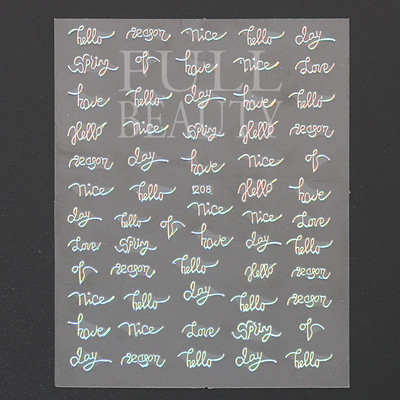 hello season Nice hello day
Spring of have Nice Love
FULL
have hello day have hello
BEAUTY
Hello Nice Spring Hello season
season day have Nice of
Nice hello 208 Hello have
day hello of Nice Nice Love
Love Spring have day hello
of season hello Hello season
Nice hello day hello Nice
have Nice Love Spring of
day season hello day hello